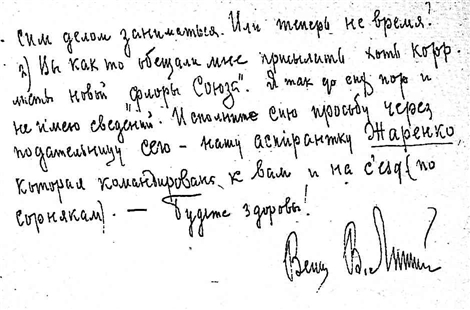 сим делом заниматься. Или теперь не время?
2) Вы как то обещали мне присылать хоть корр.
листы новой "Флоры Союза". Я так до сих пор и
не имею сведений. Исполните сию просьбу через
подательницу сего - нашу аспирантку Жаренко,
которая командирована к вам и на с'езд (по
сорнякам). — Будьте здоровы!
Ваш В.